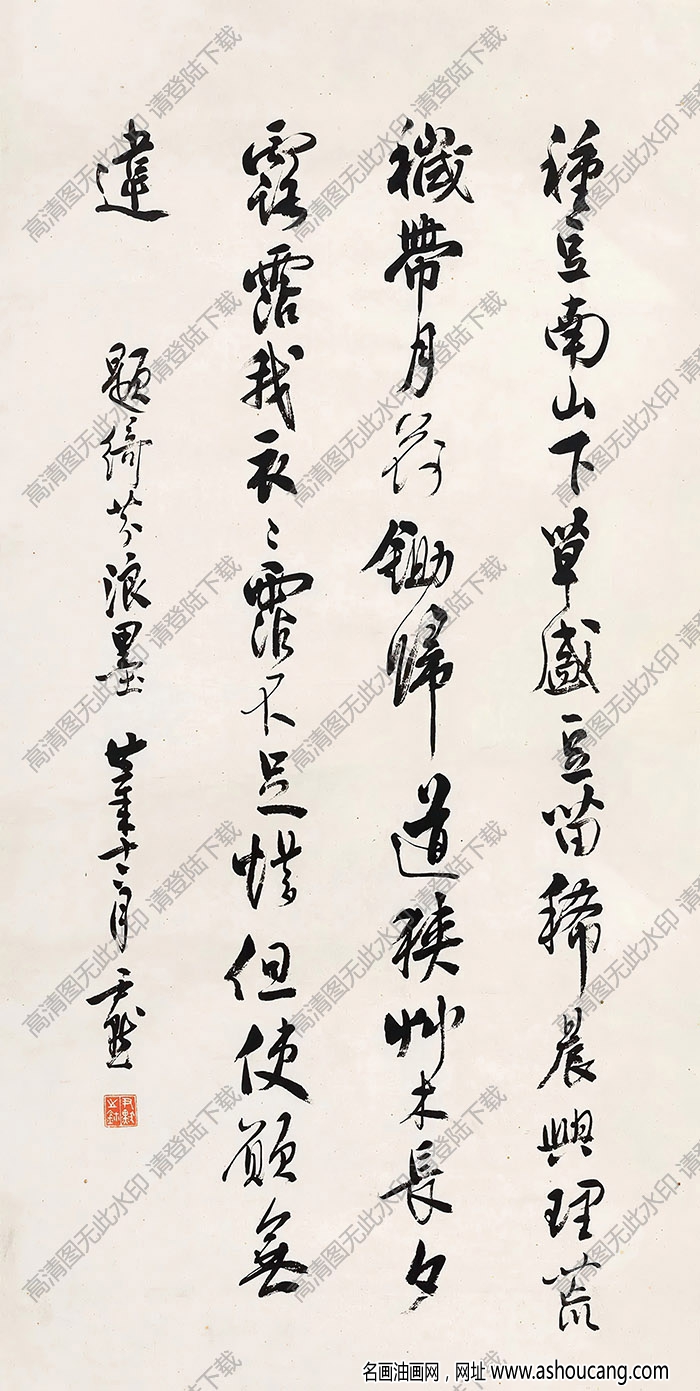 種豆南山下草盛豆苗稀晨興理荒
穢帶月荷鋤歸道狹艸木長夕
露霑我衣〻霑不足惜但使願無
違
題綺芬浪墨 年十二月 尹默
尹默之鉨
高清图无此水印 请登陆下载
名画油画网，网址 www.ashoucang.com